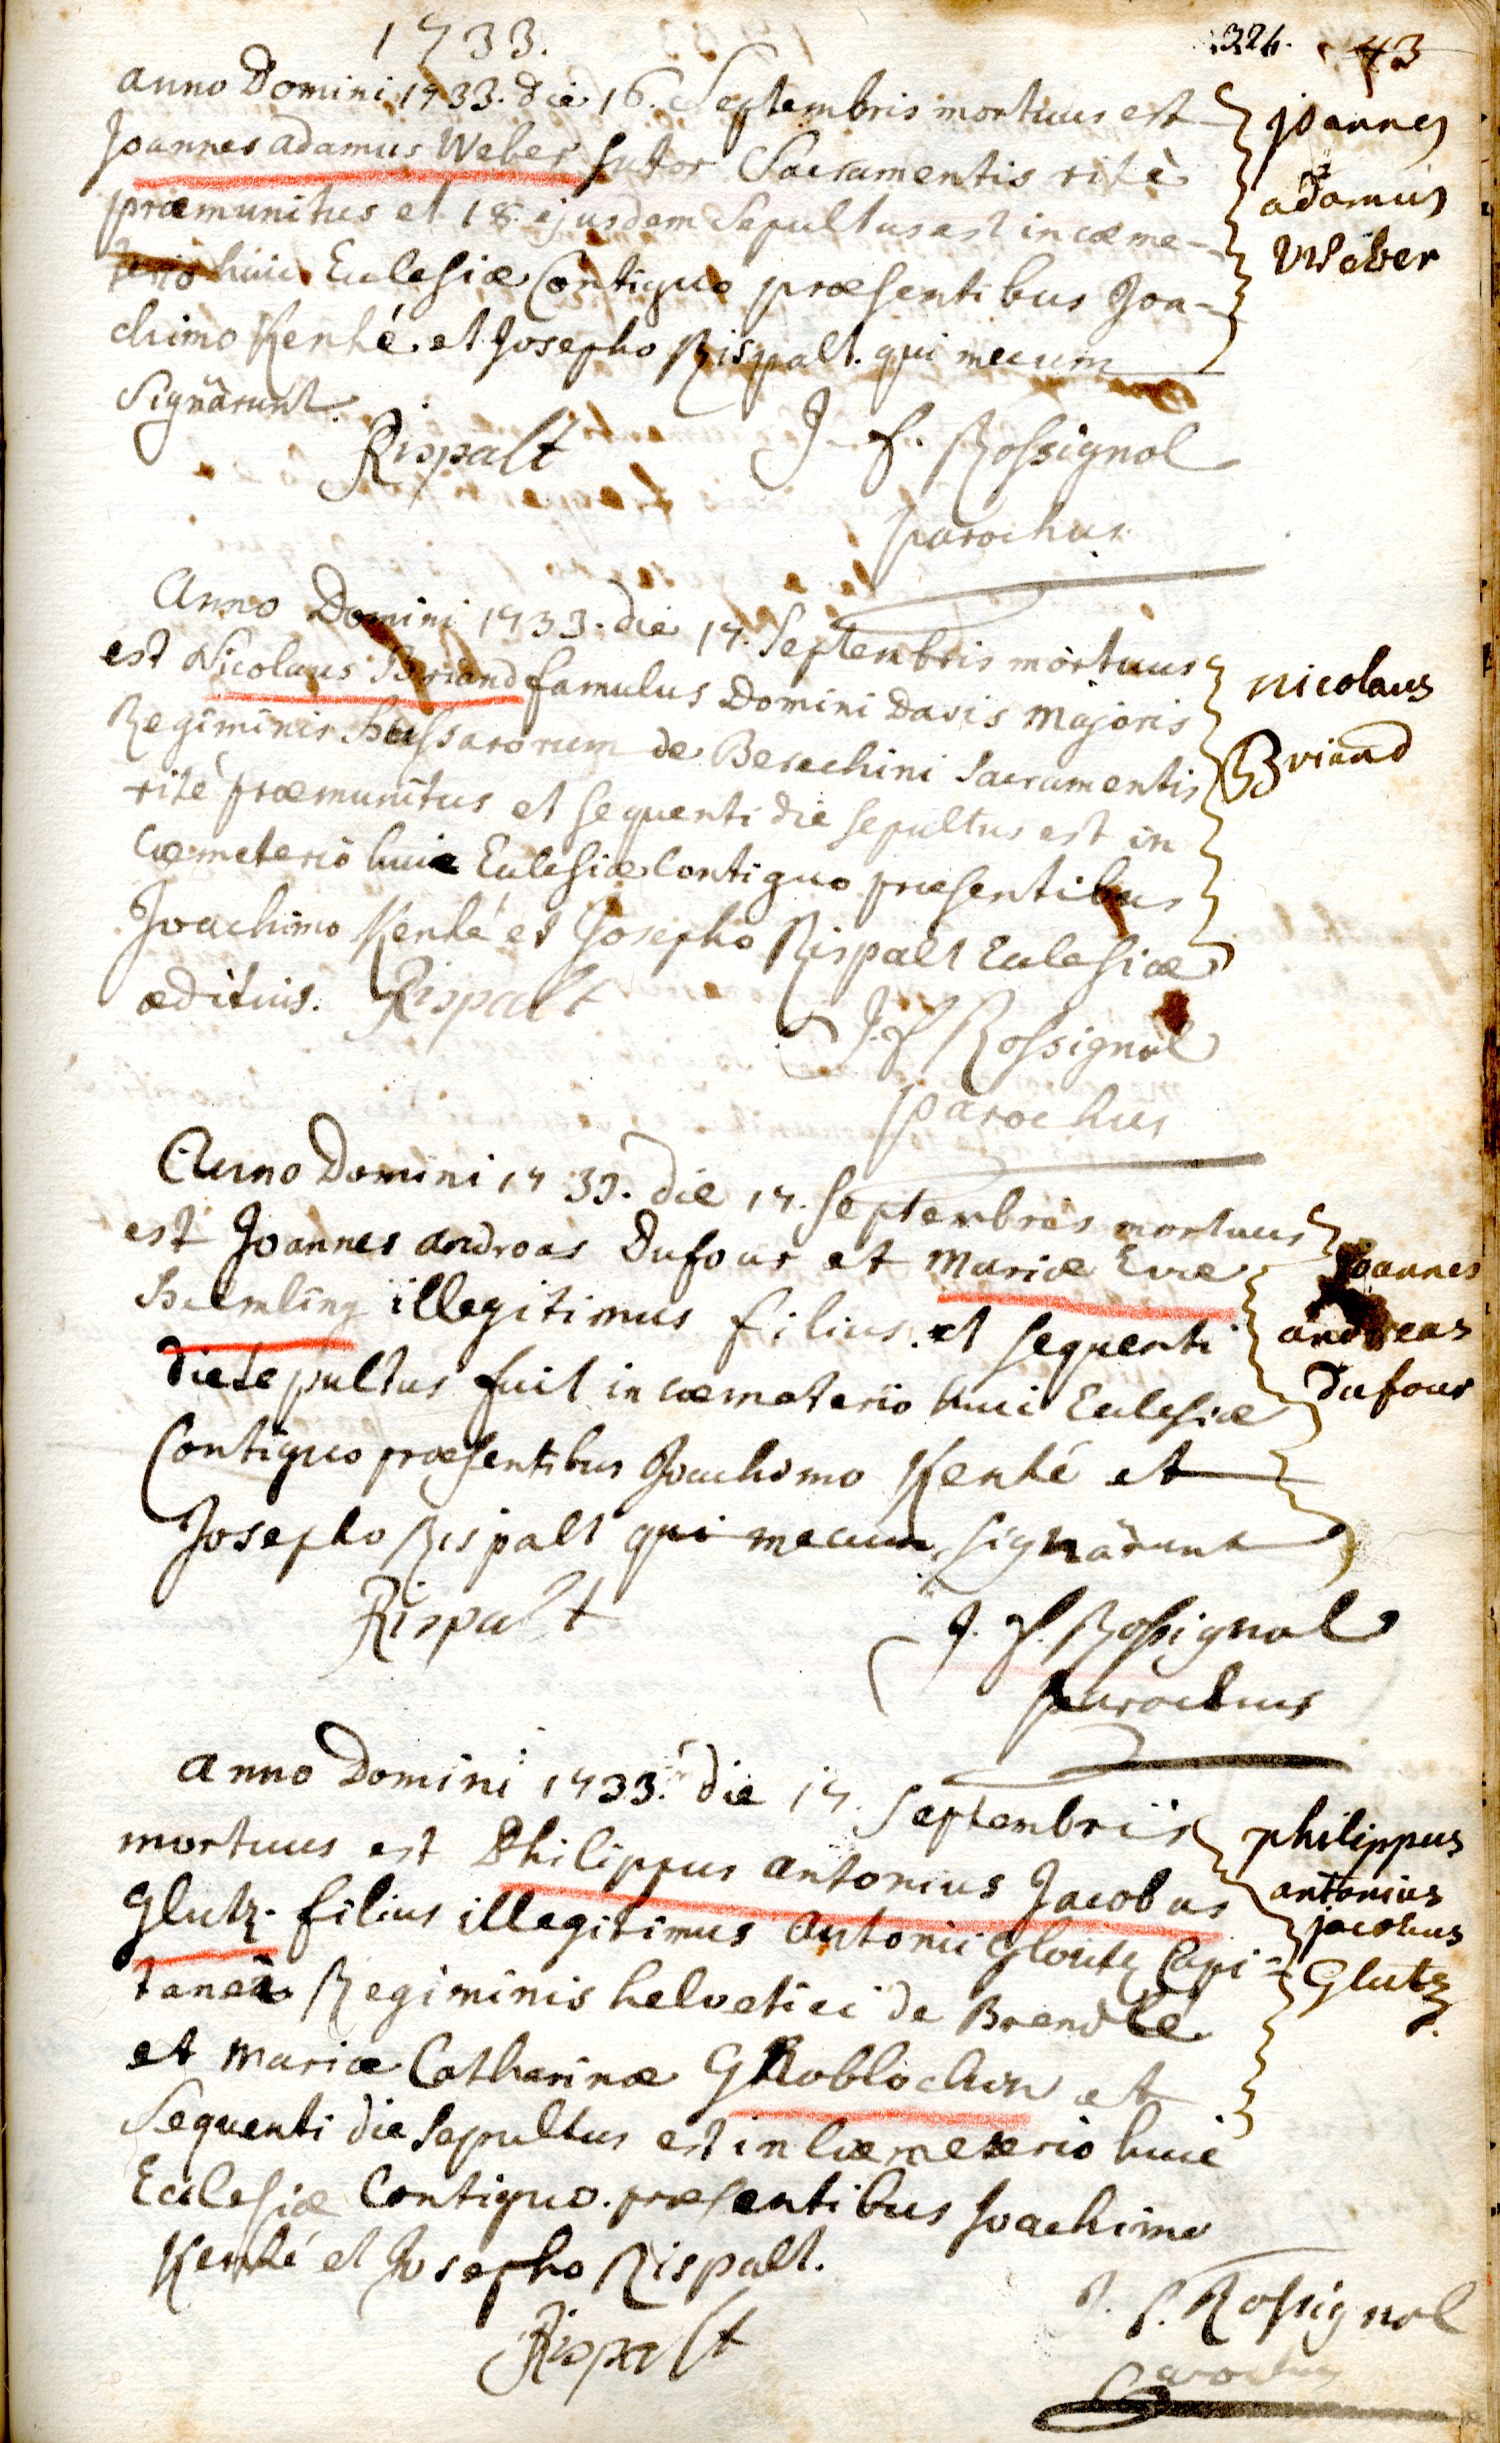 1733.
324. 43
anno Domini 1733. die 16. Septembris mortuus est
Joannes adamus Weber sutor Sacramentis ritè
præmunitus et 18. ejusdem Sepultus est in cæme-
terio huic Ecclesiæ Contiguo præsentibus Joa-
chimo Kenté et Josepho Rispalt. qui mecum
Signârunt.
joannes
adamus
Weber
Rispalt J. f. Rossignol
parochus
Anno Domini 1733. die 17. Septembris mortuus
est Nicolaus Briand famulus Domini Davis Majoris
Regiminis Hussarorum de Berechini Sacramentis
rité præmunitus et sequenti die sepultus est in
Cæmeterio huic Ecclesiæ Contiguo præsentibus
Joachimo Kenté et Josepho Rispalt Ecclesiæ
ædituis. Rispalt
nicolaus
Briand
J. f Rossignol
parochus
Anno Domini 1733. die 17. Septembris mortuus
est Joannes andreas Dufour et Mariæ Evæ
Hemling illegitimus filius. et sequenti
die sepultus fuit in cæmeterio huic Ecclesiæ
Contiguo præsentibus Joachimo Kenté et
Josepho Rispalt qui mecum signârunt
joannes
andreas
dufour
Rispalt J. f. Rossignol
parochus
anno Domini 1733. die 17. Septembris
mortuus est Philippus antonius Jacobus
Glutz. filius illegitimus antonii Gloutz Capi-
tanei Regiminis helvetici de Brendlé
et Mariæ Catharinæ Groblochon et
Sequenti die Sepultus est in Cæmeterio huic
Ecclesiæ Contiguo. præsentibus Joachimo
Kenté et Josepho Rispalt.
philippus
antonius
jacobus
Glutz.
Rispalt J. f. Rossignol
Parochus